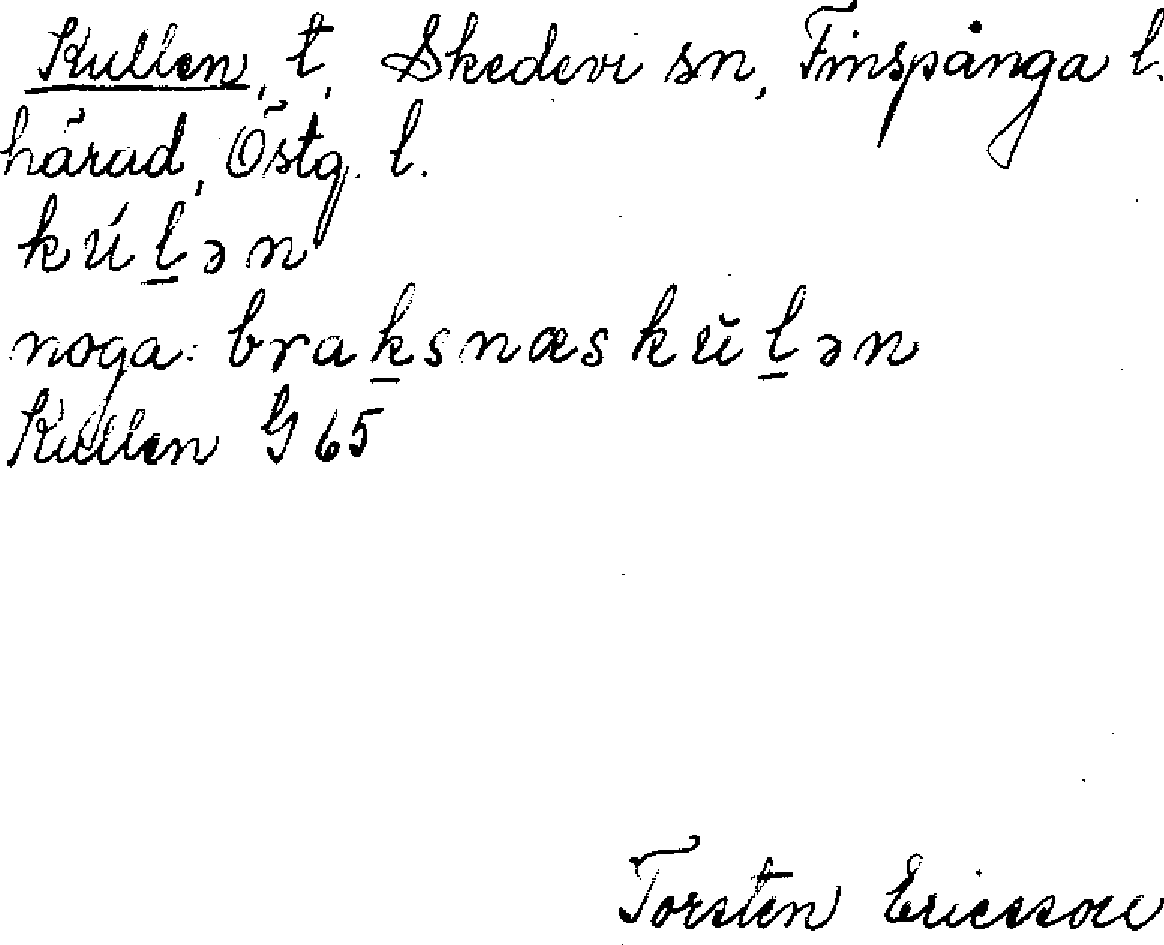 Kullen, t. Skedevi sn, Finspånga l.
härad, Östg. l.
kúḻən
noga: braḵsnæskŭḻən
Kullen G 65
Torsten Ericsson